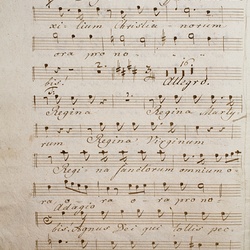 xi - lium Christia - norum
ora pro no -
bis. 2. 16. Allegro.
Regina Regina Marty
rum Regina Virginum
Regi - na sanctorum omnium o
ra ora - o - ra pro no
Adagio
bis. Agnus Dei qui tollis pec